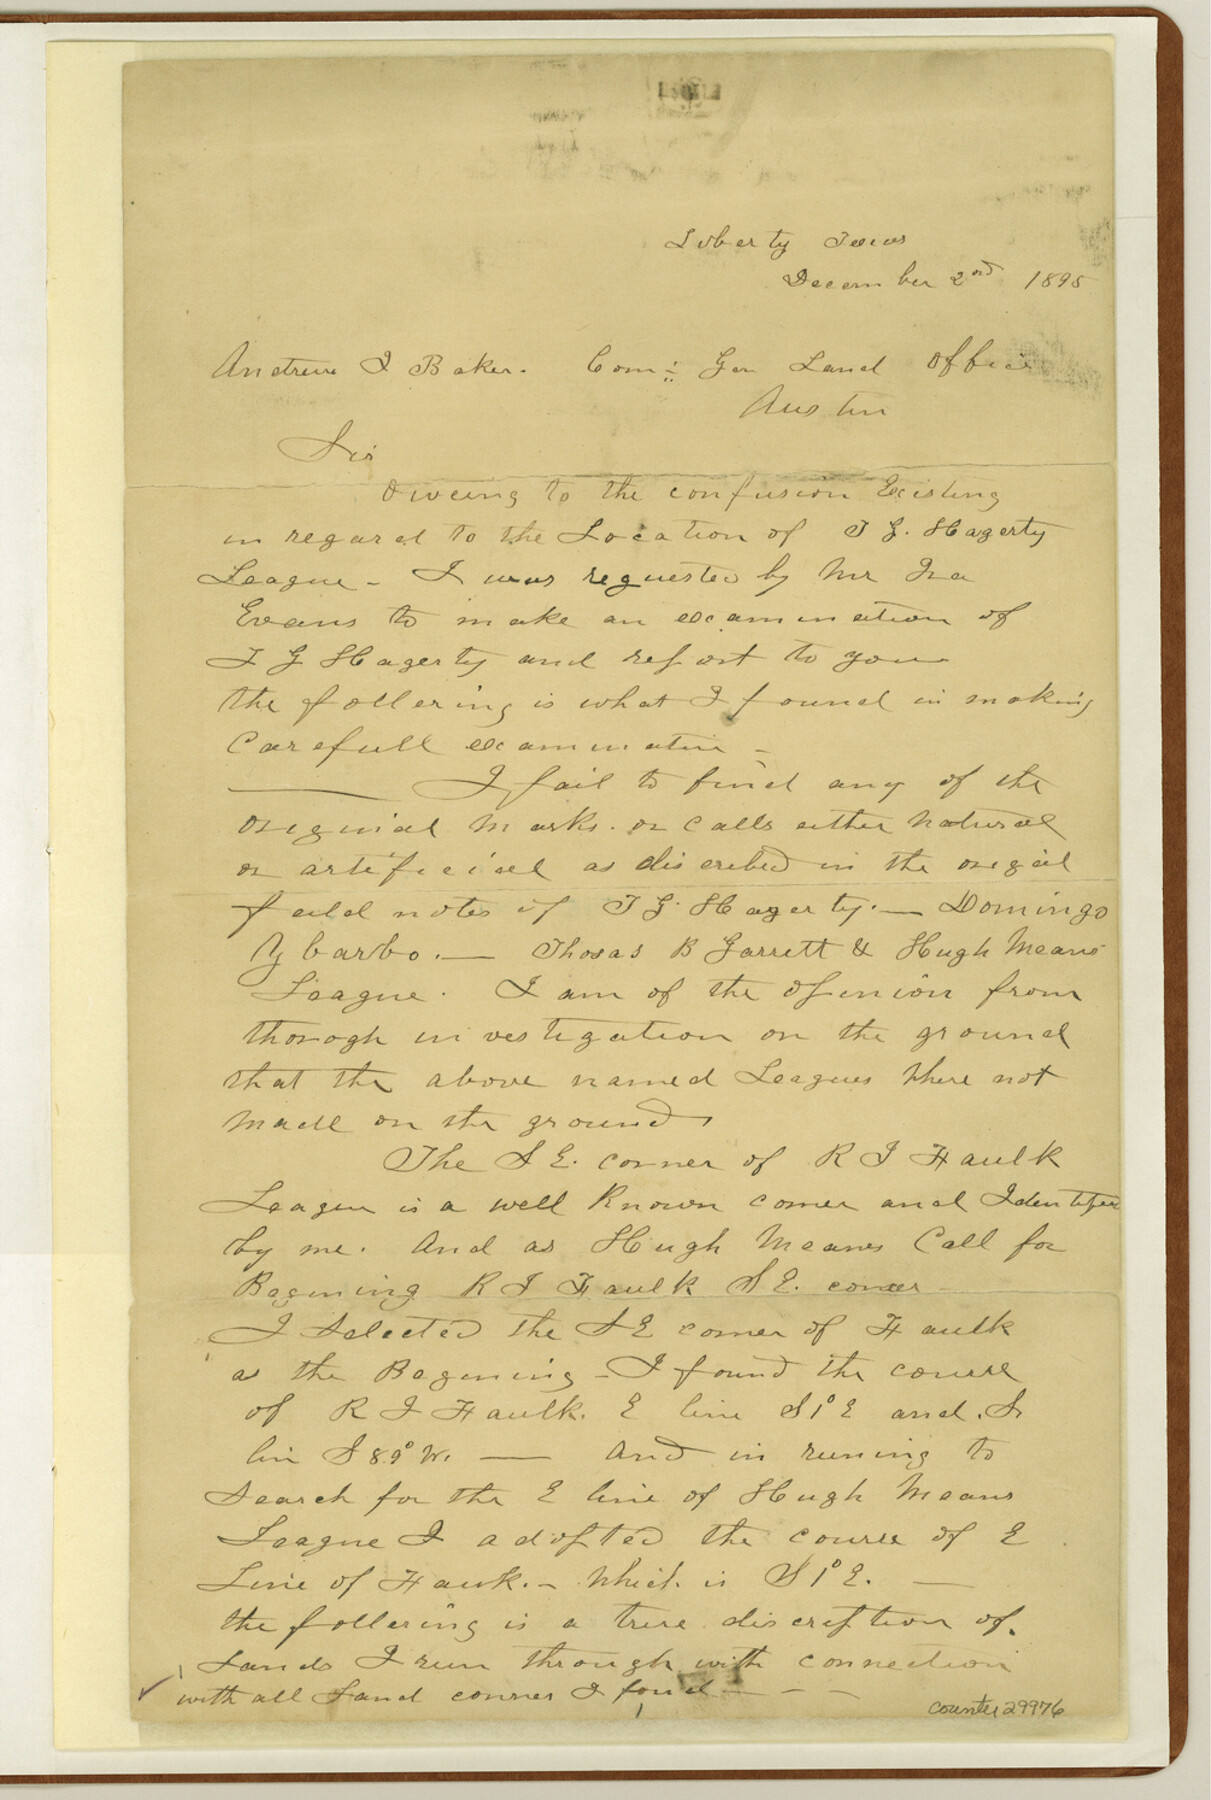 Liberty Texas
December 2nd 1895
Andrew J Baker. Com: Gen Land Office
Austin
Sir
Oweing to the confusion Existing
in regard to the Location of T G. Hagerty
League - I was requested by Mr Ira
Evans to make an examination of
T G Hagerty and report to you
the follering is what I found in making
Carefull examination -
I fail to find any of the
original marks. or calls either natural
or artificial as discribed in the origial
feild notes of T G. Hagerty. — Domingo
Y barbo. — Thosas B Garrett & Hugh Means
League. I am of the opinion from
thorogh investigation on the ground
that the above named Leagues where not
made on the ground
The S E. corner of R J Faulk
League is a well Known corner and Identified
by me. And as Hugh Means Call for
Begining R J Faulk S E. corner
I Selected the S E corner of Faulk
as the Begining - I found the course
of R J Faulk. E line S 1° E and. S
lin S 89° W. — And in runing to
Search for the E line of Hugh Means
League I adopted the course of E
Line of Faulk. - Which. is S 1° E. —
the follering is a true discreption of.
Lands I run through with connection
with all Land corners I found — - -
counter 29976